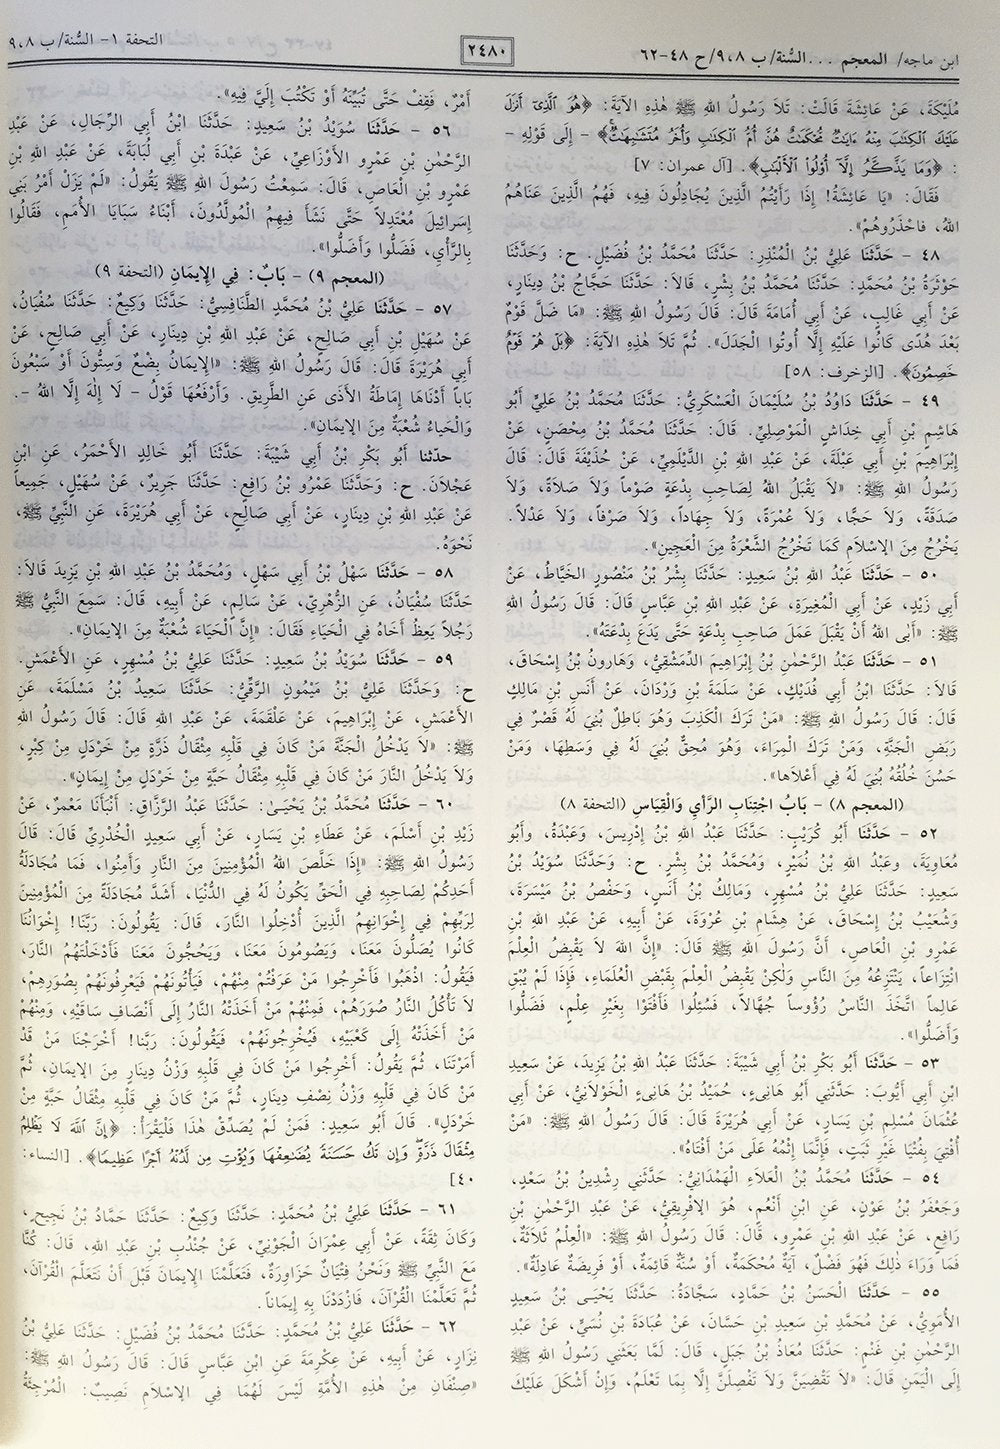 ابن ماجه/ المعجم ...السُّنة/ ب ٩،٨/ح ٤٨-٦٢
٢٤٨٠
التحفة ١- السُّنة/ ب ٩،٨
مُلَيْكَةَ، عَنْ عَائِشَةَ قَالَتْ: تَلاَ رَسُولُ اللهِ ﷺ هٰذِهِ الآيَةَ: ﴿هُوَ ٱلَّذِىٓ أَنزَلَ
عَلَيْكَ ٱلْكِتَٰبَ مِنْهُ ءَايَٰتٌ مُّحْكَمَٰتٌ هُنَّ أُمُّ ٱلْكِتَٰبِ وَأُخَرُ مُتَشَٰبِهَٰتٌۖ﴾ - إِلَى قَوْلِهِ -
: ﴿وَمَا يَذَّكَّرُ إِلَّآ أُوْلُوا۟ ٱلْأَلْبَٰبِ﴾. [آل عمران: ٧]
فَقَالَ: «يَا عَائِشَةُ! إِذَا رَأَيْتُمُ الَّذِينَ يُجَادِلُونَ فِيهِ، فَهُمُ الَّذِينَ عَنَاهُمُ
اللهُ، فاحْذَرُوهُمْ».
٤٨ - حَدَّثَنَا عَلِيُّ بْنُ الْمُنْذِرِ: حَدَّثَنَا مُحَمَّدُ بْنُ فُضَيْلٍ. ح: وَحَدَّثَنَا
حَوْثَرَةُ بْنُ مُحَمَّدٍ: حَدَّثَنَا مُحَمَّدُ بْنُ بِشْرٍ، قَالاَ: حَدَّثَنَا حَجَّاجُ بْنُ دِينَارٍ،
عَنْ أَبِي غَالِبٍ، عَنْ أَبِي أُمَامَةَ قَالَ: قَالَ رَسُولُ اللهِ ﷺ: «مَا ضَلَّ قَوْمٌ
بَعْدَ هُدًى كَانُوا عَلَيْهِ إِلَّا أُوتُوا الْجَدَلَ». ثُمَّ تَلاَ هٰذِهِ الآيَةَ: ﴿بَلْ هُمْ قَوْمٌ
خَصِمُونَ﴾. [الزخرف: ٥٨]
٤٩ - حَدَّثَنَا دَاوُدُ بْنُ سُلَيْمَانَ الْعَسْكَرِيُّ: حَدَّثَنَا مُحَمَّدُ بْنُ عَلِيٍّ أَبُو
هَاشِمِ بْنِ أَبِي خِدَاشٍ الْمَوْصِلِيِّ. قَالَ: حَدَّثَنَا مُحَمَّدُ بْنُ مِحْصَنٍ، عَنْ
إِبْرَاهِيمَ بْنِ أَبِي عَبْلَةَ، عَنْ عَبْدِ اللهِ بْنِ الدَّيْلَمِيِّ، عَنْ حُذَيْفَةَ قَالَ: قَالَ
رَسُولُ اللهِ ﷺ: «لاَ يَقْبَلُ اللهُ لِصَاحِبِ بِدْعَةٍ صَوْماً وَلاَ صَلاَةً، وَلاَ
صَدَقَةً، وَلاَ حَجًّا، وَلاَ عُمْرَةً، وَلاَ جِهَاداً، وَلاَ صَرْفاً، وَلاَ عَدْلاً.
يَخْرُجُ مِنَ الإِسْلاَمِ كَمَا تَخْرُجُ الشَّعْرَةُ مِنَ الْعَجِينِ».
٥٠ - حَدَّثَنَا عَبْدُ اللهِ بْنُ سَعِيدٍ: حَدَّثَنَا بِشْرُ بْنُ مَنْصُورٍ الْخَيَّاطُ، عَنْ
أَبِي زَيْدٍ، عَنْ أَبِي الْمُغِيرَةِ، عَنْ عَبْدِ اللهِ بْنِ عَبَّاسٍ قَالَ: قَالَ رَسُولُ اللهِ
ﷺ: «أَبَى اللهُ أَنْ يَقْبَلَ عَمَلَ صَاحِبِ بِدْعَةٍ حَتَّى يَدَعَ بِدْعَتَهُ».
٥١ - حَدَّثَنَا عَبْدُ الرَّحْمٰنِ بْنُ إِبْرَاهِيمَ الدِّمَشْقِيُّ، وَهَارُونُ بْنُ إِسْحَاقَ،
قَالاَ: حَدَّثَنَا ابْنُ أَبِي فُدَيْكٍ، عَنْ سَلَمَةَ بْنِ وَرْدَانَ، عَنْ أَنَسِ بْنِ مَالِكٍ
قَالَ: قَالَ رَسُولُ اللهِ ﷺ: «مَنْ تَرَكَ الْكَذِبَ وَهُوَ بَاطِلٌ بُنِيَ لَهُ قَصْرٌ فِي
رَبَضِ الْجَنَّةِ، وَمَنْ تَرَكَ الْمِرَاءَ، وَهُوَ مُحِقٌّ بُنِيَ لَهُ فِي وَسَطِهَا، وَمَنْ
حَسَّنَ خُلُقَهُ بُنِيَ لَهُ فِي أَعْلاَهَا».
(المعجم ٨) - بَابُ اجْتِنَابِ الرَّأيِ وَالْقِيَاسِ (التحفة ٨)
٥٢ - حَدَّثَنَا أَبُو كُرَيْبٍ: حَدَّثَنَا عَبْدُ اللهِ بْنُ إِدْرِيسَ، وَعَبْدَةُ، وأَبُو
مُعَاوِيَةَ، وعَبْدُ اللهِ بْنُ نُمَيْرٍ، وَمُحَمَّدُ بْنُ بِشْرٍ. ح: وَحَدَّثَنَا سُوَيْدُ بْنُ
سَعِيدٍ: حَدَّثَنَا عَلِيُّ بْنُ مُسْهِرٍ، وَمَالِكُ بْنُ أَنَسٍ، وَحَفْصُ بْنُ مَيْسَرَةَ،
وَشُعَيْبُ بْنُ إِسْحَاقَ، عَنْ هِشَامِ بْنِ عُرْوَةَ، عَنْ أَبِيهِ، عَنْ عَبْدِ اللهِ بْنِ
عَمْرِو بْنِ الْعَاصِ، أَنَّ رَسُولَ اللهِ ﷺ قَالَ: «إِنَّ اللهَ لاَ يَقْبِضُ الْعِلْمَ
انْتِزَاعاً، يَنْتَزِعُهُ مِنَ النَّاسِ وَلَكِنْ يَقْبِضُ الْعِلْمَ بِقَبْضِ الْعُلَمَاءِ، فَإِذَا لَمْ يُبْقِ
عَالِماً اتَّخَذَ النَّاسُ رُؤُوساً جُهَّالاً، فَسُئِلُوا فَأَفْتَوْا بِغَيْرِ عِلْمٍ، فَضَلُّوا
وَأَضَلُّوا».
٥٣ - حَدَّثَنَا أَبُو بَكْرِ بْنُ أَبِي شَيْبَةَ: حَدَّثَنَا عَبْدُ اللهِ بْنُ يَزِيدَ، عَنْ سَعِيدِ
ابْنِ أَبِي أَيُّوبَ: حَدَّثَنِي أَبُو هَانِىءٍ، حُمَيْدُ بْنُ هَانِىءٍ الْخَوْلاَنِيُّ، عَنْ أَبِي
عُثْمَانَ مُسْلِمِ بْنِ يَسَارٍ، عَنْ أَبِي هُرَيْرَةَ قَالَ: قَالَ رَسُولُ اللهِ ﷺ: «مَنْ
أُفْتِيَ بِفُتْيَا غَيْرِ ثَبَتٍ، فَإِنَّمَا إِثْمُهُ عَلَى مَنْ أَفْتَاهُ».
٥٤ - حَدَّثَنَا مُحَمَّدُ بْنُ الْعَلاَءِ الْهَمْدَانِيُّ: حَدَّثَنِي رِشْدِينُ بْنُ سَعْدٍ،
وَجَعْفَرُ بْنُ عَوْنٍ، عَنِ ابْنِ أَنْعُمٍ، هُوَ الإِفْرِيقِيُّ، عَنْ عَبْدِ الرَّحْمٰنِ بْنِ
رَافِعٍ، عَنْ عَبْدِ اللهِ بْنِ عَمْرٍو، قَالَ: قَالَ رَسُولُ اللهِ ﷺ: «الْعِلْمُ ثَلاَثَةٌ،
فَمَا وَرَاءَ ذٰلِكَ فَهُوَ فَضْلٌ، آيَةٌ مُحْكَمَةٌ، أَوْ سُنَّةٌ قَائِمَةٌ، أَوْ فَرِيضَةٌ عَادِلَةٌ».
٥٥ - حَدَّثَنَا الْحَسَنُ بْنُ حَمَّادٍ، سَجَّادَةُ: حَدَّثَنَا يَحْيَـى بْنُ سَعِيدٍ
الأُمَوِيُّ، عَنْ مُحَمَّدِ بْنِ سَعِيدِ بْنِ حَسَّانَ، عَنْ عُبَادَةَ بْنِ نُسَيٍّ، عَنْ عَبْدِ
الرَّحْمٰنِ بْنِ غَنْمٍ: حَدَّثَنَا مُعَاذُ بْنُ جَبَلٍ، قَالَ: لَمَّا بَعَثَنِي رَسُولُ اللهِ ﷺ
إِلَى الْيَمَنِ قَالَ: «لاَ تَقْضِيَنَّ وَلاَ تَفْصِلَنَّ إِلَّا بِمَا تَعْلَمُ، وَإِنْ أَشْكَلَ عَلَيْكَ
أَمْرٌ، فَقِفْ حَتَّى تُبَيِّنَهُ أَوْ تَكْتُبَ إِلَيَّ فِيهِ».
٥٦ - حَدَّثَنَا سُوَيْدُ بْنُ سَعِيدٍ: حَدَّثَنَا ابْنُ أَبِي الرِّجَالِ، عَنْ عَبْدِ
الرَّحْمٰنِ بْنِ عَمْرٍو الأَوْزَاعِيِّ، عَنْ عَبْدَةَ بْنِ أَبِي لُبَابَةَ، عَنْ عَبْدِ اللهِ بْنِ
عَمْرِو بْنِ الْعَاصِ، قَالَ: سَمِعْتُ رَسُولَ اللهِ ﷺ يَقُولُ: «لَمْ يَزَلْ أَمْرُ بَنِي
إِسْرَائِيلَ مُعْتَدِلاً حَتَّى نَشَأَ فِيهِمُ الْمُوَلَّدُونَ، أَبْنَاءُ سَبَايَا الأُمَمِ، فَقَالُوا
بِالرَّأْيِ، فَضَلُّوا وَأَضَلُّوا».
(المعجم ٩) - بَابٌ: فِي الإِيمَانِ (التحفة ٩)
٥٧ - حَدَّثَنَا عَلِيُّ بْنُ مُحَمَّدٍ الطَّنَافِسِيُّ: حَدَّثَنَا وَكِيعٌ: حَدَّثَنَا سُفْيَانُ،
عَنْ سُهَيْلِ بْنِ أَبِي صَالِحٍ، عَنْ عَبْدِ اللهِ بْنِ دِينَارٍ، عَنْ أَبِي صَالِحٍ، عَنْ
أَبِي هُرَيْرَةَ قَالَ: قَالَ رَسُولُ اللهِ ﷺ: «الإِيمَانُ بِضْعٌ وَسِتُّونَ أَوْ سَبْعُونَ
بَاباً أَدْنَاهَا إِمَاطَةُ الأَذَى عَنِ الطَّرِيقِ. وَأَرْفَعُهَا قَوْلُ - لاَ إِلٰهَ إِلَّا اللهُ -.
وَالْحَيَاءُ شُعْبَةٌ مِنَ الإِيمَانِ».
حَدَّثنا أَبُو بَكْرِ بْنُ أَبِي شَيْبَةَ: حَدَّثَنَا أَبُو خَالِدٍ الأَحْمَرُ، عَنِ ابْنِ
عَجْلاَنَ. ح: وَحَدَّثَنَا عَمْرُو بْنُ رَافِعٍ: حَدَّثَنَا جَرِيرٌ، عَنْ سُهَيْلٍ، جَمِيعاً
عَنْ عَبْدِ اللهِ بْنِ دِينَارٍ، عَنْ أَبِي صَالِحٍ، عَنْ أَبِي هُرَيْرَةَ، عَنِ النَّبِيِّ ﷺ،
نَحْوَهُ.
٥٨ - حَدَّثَنَا سَهْلُ بْنُ أَبِي سَهْلٍ، وَمُحَمَّدُ بْنُ عَبْدِ اللهِ بْنِ يَزِيدَ قَالاَ:
حَدَّثَنَا سُفْيَانُ، عَنِ الزُّهْرِيِّ، عَنْ سَالِمٍ، عَنْ أَبِيهِ، قَالَ: سَمِعَ النَّبِيُّ ﷺ
رَجُلاً يَعِظُ أَخَاهُ فِي الْحَيَاءِ فَقَالَ: «إِنَّ الْحَيَاءَ شُعْبَةٌ مِنَ الإِيمَانِ».
٥٩ - حَدَّثَنَا سُوَيْدُ بْنُ سَعِيدٍ: حَدَّثَنَا عَلِيُّ بْنُ مُسْهِرٍ، عَنِ الأَعْمَشِ.
ح: وَحَدَّثَنَا عَلِيُّ بْنُ مَيْمُونٍ الرَّقِّيُّ: حَدَّثَنَا سَعِيدُ بْنُ مَسْلَمَةَ، عَنِ
الأَعْمَشِ، عَنْ إِبْرَاهِيمَ، عَنْ عَلْقَمَةَ، عَنْ عَبْدِ اللهِ قَالَ: قَالَ رَسُولُ اللهِ
ﷺ: «لاَ يَدْخُلُ الْجَنَّةَ مَنْ كَانَ فِي قَلْبِهِ مِثْقَالُ ذَرَّةٍ مِنْ خَرْدَلٍ مِنْ كِبْرٍ،
وَلاَ يَدْخُلُ النَّارَ مَنْ كَانَ فِي قَلْبِهِ مِثْقَالُ حَبَّةٍ مِنْ خَرْدَلٍ مِنْ إِيمَانٍ».
٦٠ - حَدَّثَنَا مُحَمَّدُ بْنُ يَحْيَـىٰ: حَدَّثَنَا عَبْدُ الرَّزَّاقِ: أَنْبَأَنَا مَعْمَرٌ، عَنْ
زَيْدِ بْنِ أَسْلَمَ، عَنْ عَطَاءِ بْنِ يَسَارٍ، عَنْ أَبِي سَعِيدٍ الْخُدْرِيِّ قَالَ: قَالَ
رَسُولُ اللهِ ﷺ: «إِذَا خَلَّصَ اللهُ الْمُؤْمِنِينَ مِنَ النَّارِ وَأَمِنُوا، فَمَا مُجَادَلَةُ
أَحَدِكُمْ لِصَاحِبِهِ فِي الْحَقِّ يَكُونُ لَهُ فِي الدُّنْيَا، أَشَدَّ مُجَادَلَةً مِنَ الْمُؤْمِنِينَ
لِرَبِّهِمْ فِي إِخْوَانِهِمُ الَّذِينَ أُدْخِلُوا النَّارَ، قَالَ: يَقُولُونَ: رَبَّنَا! إِخْوَانُنَا
كَانُوا يُصَلُّونَ مَعَنَا، وَيَصُومُونَ مَعَنَا، وَيَحُجُّونَ مَعَنَا فَأَدْخَلْتَهُمُ النَّارَ،
فَيَقُولُ: اذْهَبُوا فَأَخْرِجُوا مَنْ عَرَفْتُمْ مِنْهُمْ، فَيَأْتُونَهُمْ فَيَعْرِفُونَهُمْ بِصُوَرِهِمْ،
لاَ تَأْكُلُ النَّارُ صُوَرَهُمْ، فَمِنْهُمْ مَنْ أَخَذَتْهُ النَّارُ إِلَى أَنْصَافِ سَاقَيْهِ، وَمِنْهُمْ
مَنْ أَخَذَتْهُ إِلَى كَعْبَيْهِ، فَيُخْرِجُونَهُمْ، فَيَقُولُونَ: رَبَّنا! أَخْرَجْنَا مَنْ قَدْ
أَمَرْتَنَا، ثُمَّ يَقُولُ: أَخْرِجُوا مَنْ كَانَ فِي قَلْبِهِ وَزْنُ دِينَارٍ مِنَ الإِيمَانِ، ثُمَّ
مَنْ كَانَ فِي قَلْبِهِ وَزْنُ نِصْفِ دِينَارٍ، ثُمَّ مَنْ كَانَ فِي قَلْبِهِ مِثْقَالُ حَبَّةٍ مِنْ
خَرْدَلٍ». قَالَ أَبُو سَعِيدٍ: فَمَنْ لَمْ يُصَدِّقْ هٰذَا فَلْيَقْرَأْ: ﴿إِنَّ ٱللَّهَ لَا يَظْلِمُ
مِثْقَالَ ذَرَّةٍۖ وَإِن تَكُ حَسَنَةً يُضَٰعِفْهَا وَيُؤْتِ مِن لَّدُنْهُ أَجْرًا عَظِيمًا﴾. [النساء:
٤٠]
٦١ - حَدَّثَنَا عَلِيُّ بْنُ مُحَمَّدٍ: حَدَّثَنَا وَكِيعٌ: حَدَّثَنَا حَمَّادُ بْنُ نَجِيحٍ،
وَكَانَ ثِقَةً، عَنْ أَبِي عِمْرَانَ الْجَوْنِيِّ، عَنْ جُنْدُبِ بْنِ عَبْدِ اللهِ، قَالَ: كُنَّا
مَعَ النَّبِيِّ ﷺ وَنَحْنُ فِتْيَانٌ حَزَاوِرَةٌ، فَتَعَلَّمْنَا الإِيمَانَ قَبْلَ أَنْ نَتَعَلَّمَ الْقُرْآنَ،
ثُمَّ تَعَلَّمْنَا الْقُرْآنَ، فَازْدَدْنَا بِهِ إِيمَاناً.
٦٢ - حَدَّثَنَا عَلِيُّ بْنُ مُحَمَّدٍ: حَدَّثَنَا مُحَمَّدُ بْنُ فُضَيْلٍ: حَدَّثَنَا عَلِيُّ بْنُ
نِزَارٍ، عَنْ أَبِيهِ، عَنْ عِكْرِمَةَ عَنِ ابْنِ عَبَّاسٍ قَالَ: قَالَ رَسُولُ اللهِ ﷺ:
«صِنْفَانِ مِنْ هٰذِهِ الأُمَّةِ لَيْسَ لَهُمَا فِي الإِسْلاَمِ نَصِيبٌ: الْمُرْجِئَةُ